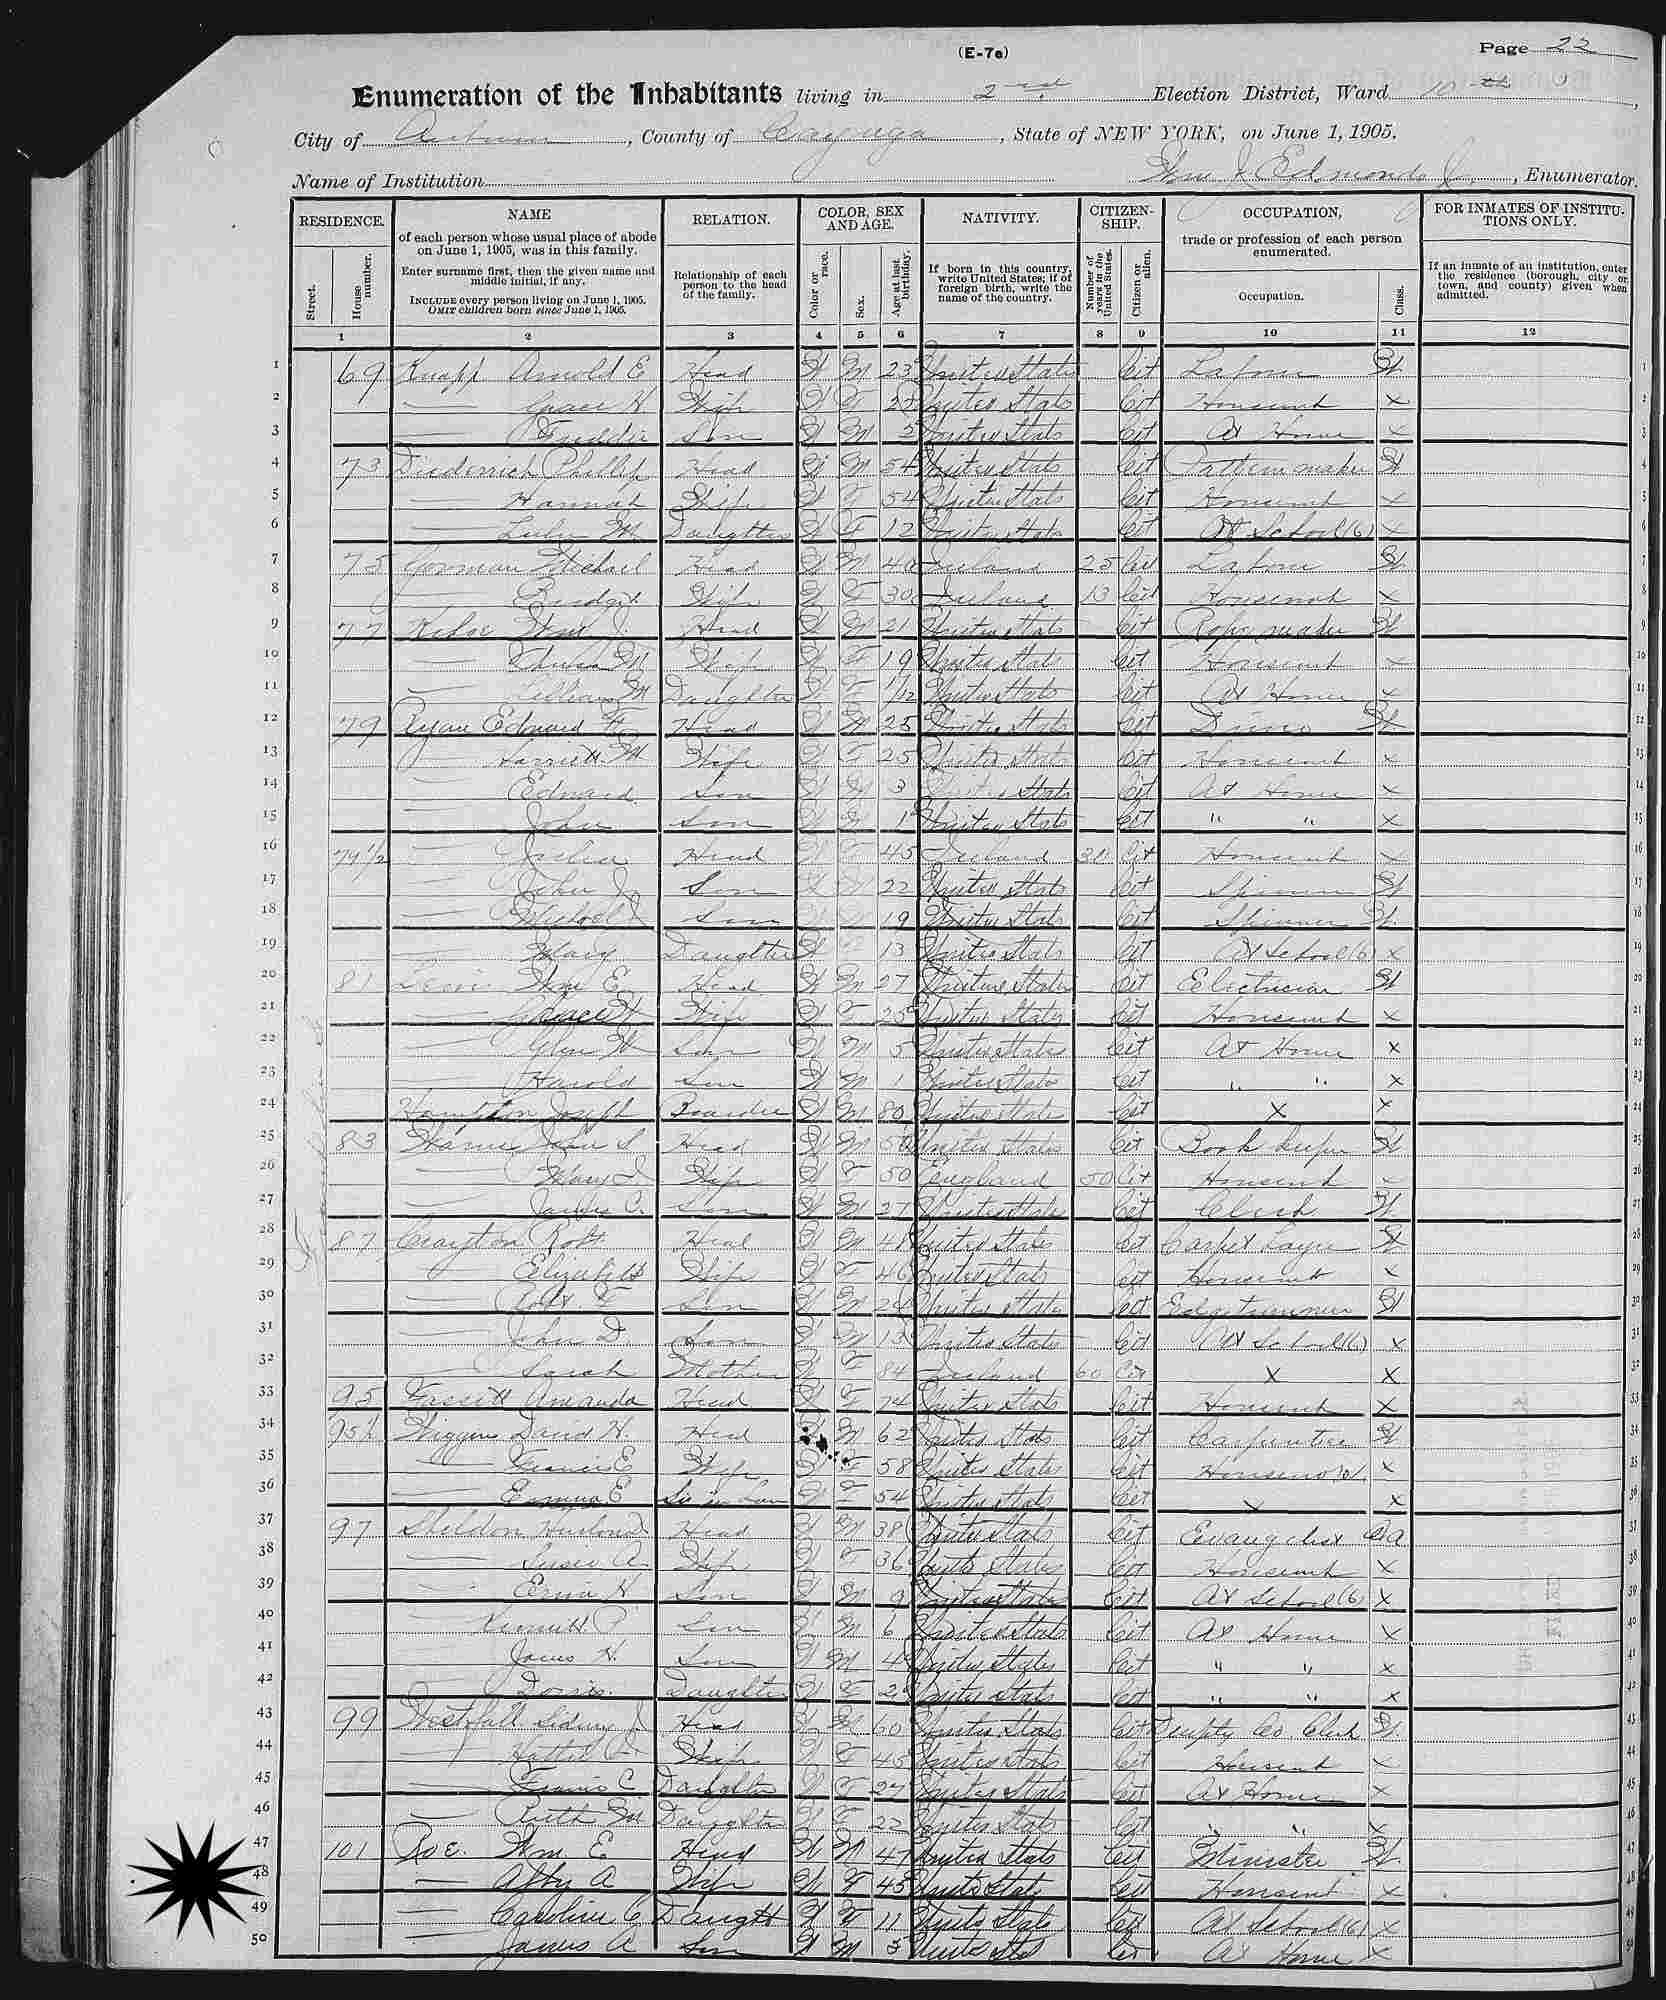 (E-7e)
Page 22
Enumeration of the Inhabitants living in 2nd Election District, Ward 10th,
City of Auburn, County of Cayuga, State of NEW YORK, on June 1, 1905.
Name of Institution Wm J Edmonds Jr, Enumerator.
RESIDENCE. NAME RELATION. COLOR, SEX AND AGE. NATIVITY. CITIZEN-SHIP. OCCUPATION, FOR INMATES OF INSTITU-TIONS ONLY.
Street. House number.
of each person whose usual place of abode on June 1, 1905, was in this family.
Enter surname first, then the given name and middle initial, if any.
INCLUDE every person living on June 1, 1905.
OMIT children born since June 1, 1905.
Relationship of each person to the head of the family.
Color or race. Sex. Age at last birthday.
If born in this country, write United States; if of foreign birth, write the name of the country.
Number of years in the United States. Citizen or alien.
trade or profession of each person enumerated.
Occupation. Class.
If an inmate of an institution, enter the residence (borough, city or town, and county) given when admitted.
1 2 3 4 5 6 7 8 9 10 11 12
1 69 Knapp Arnold E Head W M 23 United States Cit Labour W 1
2 — Grace H. Wife W F United States Cit Housewk x 2
3 — Freddie Son W M 2 United States Cit At Home x 3
4 73 Diederrich Phillip Head W M 54 United States Cit Pattern maker W 4
5 — Hannah Wife W F 54 United States Cit Housewk x 5
6 — Lulu M Daughter W F 12 United States Cit At School (6) x 6
7 75 Gorman Michael Head W M 40 Ireland 25 Cit Labour W 7
8 — Bridget Wife W F 30 Ireland 13 Cit Housewk x 8
9 77 Kehoe Wm J. Head W M 21 United States Cit Rope maker W 9
10 — M Wife W F 19 United States Cit Housewk x 10
11 — Lillian M Daughter W F 1/12 United States Cit At Home x 11
12 79 Ryan Edward F. Head W M 25 United States Cit W 12
13 — Harriet M Wife W F 25 United States Cit Housewk x 13
14 — Edward Son W M 3 United States Cit At Home x 14
15 — John Son W M 1 United States Cit " " x 15
16 79 1/2 — Julia Head W F 45 Ireland Cit Housewk x 16
17 — John J. Son W M 22 United States Cit Spinner W 17
18 — Michael J Son W M 19 United States Cit Spinner W 18
19 — Mary Daughter W F 13 United States Cit At School (6) x 19
20 81 Wm E. Head W M 27 United States Cit Electrician W 20
21 — Wife W F 25 United States Cit Housewk x 21
22 — Glen W Son W M 5 United States Cit At Home x 22
23 — Harold Son W M 1 United States Cit " " x 23
24 Hampton Joseph Boarder W M 80 United States Cit x x 24
25 83 John S. Head W M United States Cit Book keeper W 25
26 — Mary J. Wife W F 50 England 50 Cit Housewk x 26
27 — James C. Son W M 27 United States Cit Clerk W 27
28 87 Crayton Robt. Head W M United States Cit Carpet Layer W 28
29 — Elizabeth Wife W F 46 United States Cit Housewk x 29
30 — Robt. F Son W M 24 United States Cit Edgetrimmer W 30
31 — John D. Son W M 13 United States Cit At School (6) x 31
32 — Sarah Mother W F 84 Ireland 60 Cit x x 32
33 95 Amanda Head W F 74 United States Cit Housewk x 33
34 95 1/2 Wiggins David H. Head W M 62 United States Cit Carpenter W 34
35 — Francis E Wife W F 58 United States Cit Housework x 35
36 — Emma E Sis in Law W F 54 United States Cit x x 36
37 97 Sheldon Head W M 38 United States Cit Evangelist Oa 37
38 — Susie A. Wife W F 36 United States Cit Housewk x 38
39 — H Son W M 9 United States Cit At School (6) x 39
40 Kennett P Son W M 6 United States Cit At Home x 40
41 James H. Son W M 4 United States Cit " " x 41
42 — Doris. Daughter W F 2 United States Cit " " x 42
43 99 Westfall Sidney J. Head W M 60 United States Cit Deupty Co. Clerk W. 43
44 — Hattie Wife W F United States Cit Housewk x 44
45 — Francis C. Daughter W F 27 United States Cit At Home x 45
46 — Ruth M Daughter W F 22 United States Cit " " x 46
47 101 Roe. Wm. E Head W M 47 United States Cit Minister W. 47
48 — Abby A Wife W F 45 United State Cit Housewk x 48
49 — Caroline C Daught W F 11 United States Cit At School (6) x 49
50 — James A Son W M United States Cit At Home x 50